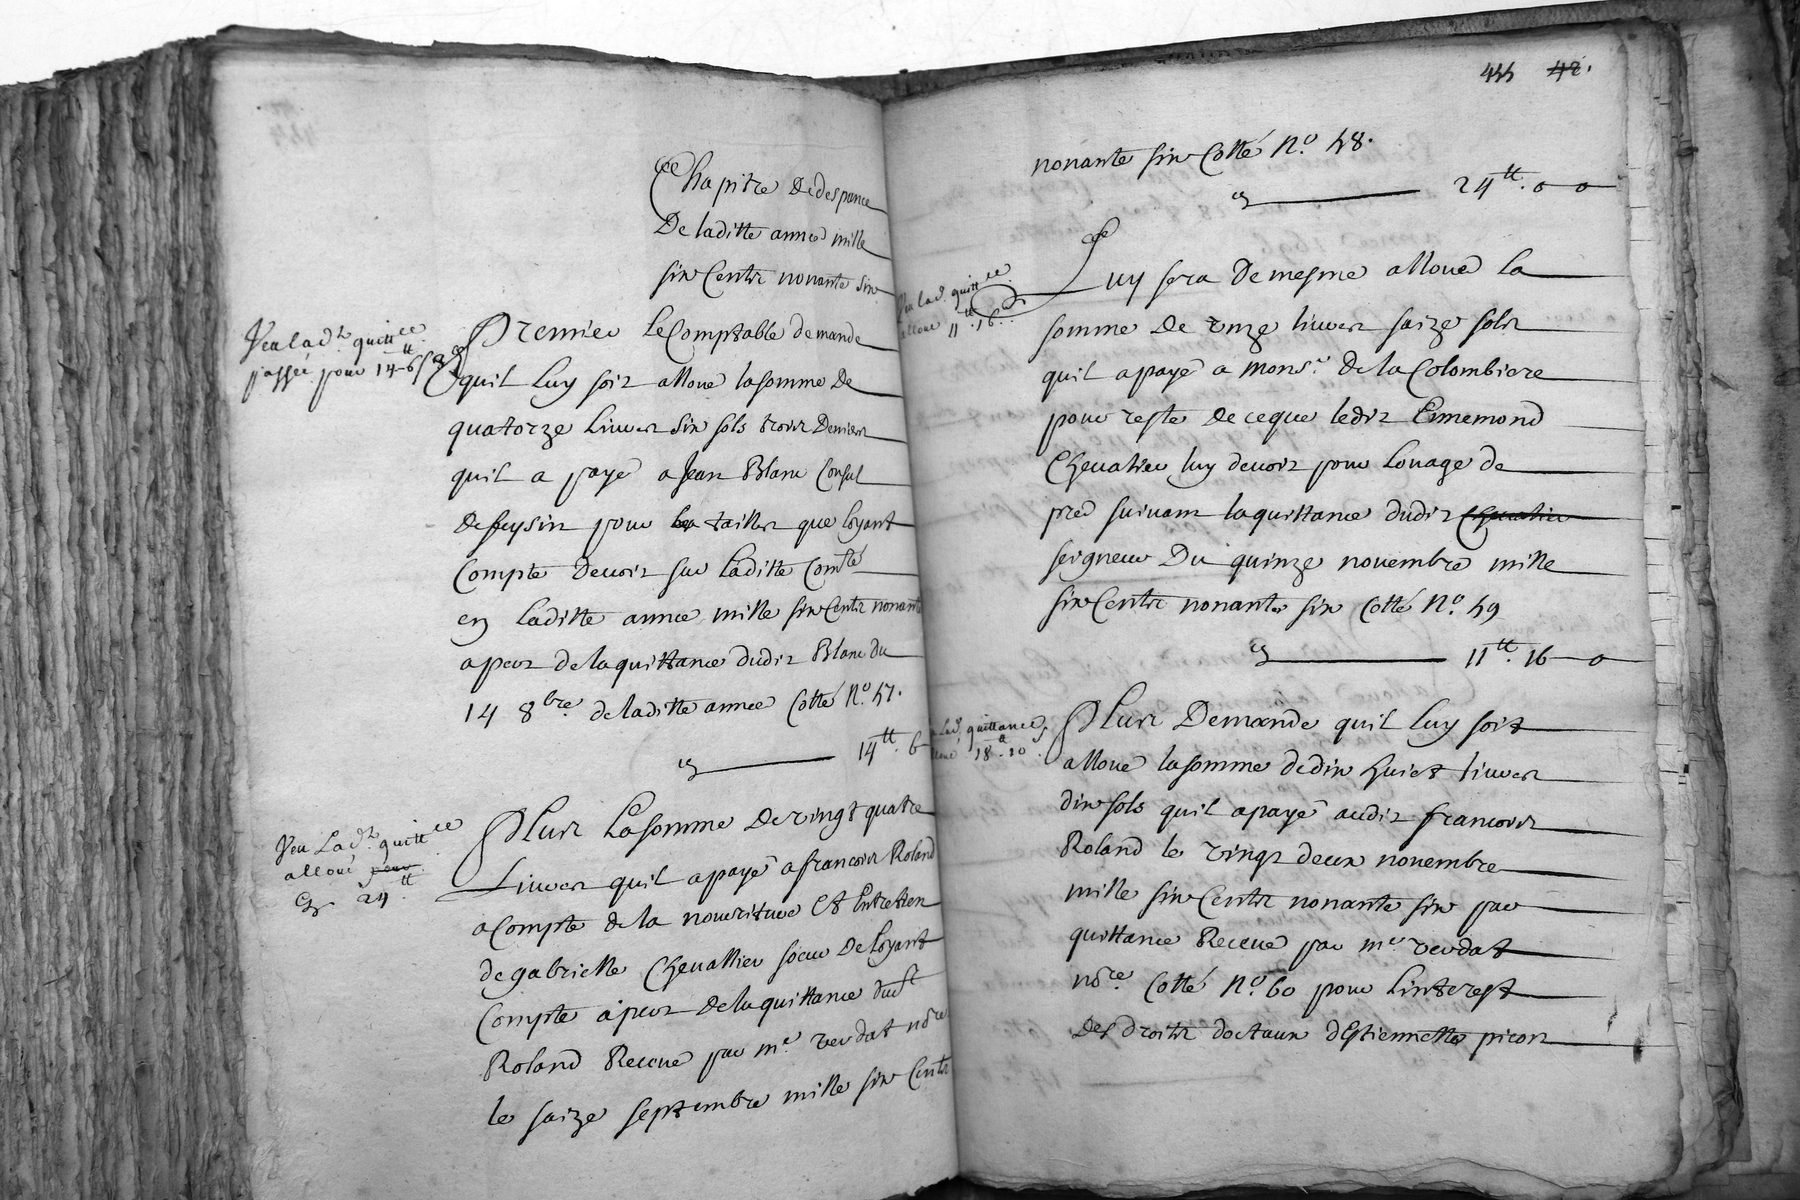 Chapitre de despance
De laditte année mille
six Cents nonante six
Veu lad.te quitt.ce
passée pour 14-6s
Premier le Comptable demande
quil luy soit alloué la somme De
quatorze livres six sols trois Deniers
quil a payé a Jean Blanc Consul
de feysin pour les tailles que loyant
Compte devoit sur laditte Com.té
en laditte année mille six Cents nonante
apert de la quittance dudit Blanc du
14 8bre de laditte année Cotté N.o 57.
Cy 14tt. 6
Veu Lad.te quitt.ce
alloué pour
Cy 24tt
Plus La somme De vingt quatre
Livres quil a payé a francois Roland
a Compte de la nourriture Et Entretien
de gabrielle Chevallier soeur De loyant
Compte apert De la quittance dud.t
Roland Receue par m.e verdat n.dre
le saize septembre mille six Cents
455 42.
nonante six Cotté N.o 58.
Cy 24tt. o o
Veu lad. quitt.ce
alloué 11tt. 16
Luy sera De mesme alloué La
somme De onze livres saize sols
quil a payé a Mons.r De la Colombiere
pour reste de ce que ledit Ennemond
Chevalier luy devoit pour Louage de
pred suivant la quittance dudit Chevalier
seigneur Du quinze novembre mille
six Cents nonante six Cotté N.o 59
Cy 11tt. 16 o
Lad. quittance
18tt. 10s
Plus Demande quil luy soit
alloué la somme de dix huict livres
dix sols quil a payé audit francois
Roland le vingt deux novembre
mille six Cents nonante six par
quittance Receue par m.e verdat
n.re Cotté N.o 60 pour Linterest
Des droits dotaux dEstiennette picon